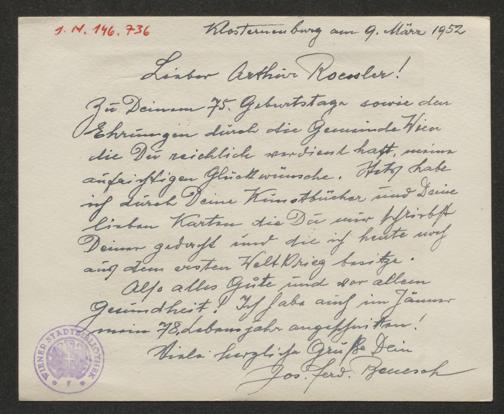 J. N. 146.736
Klosterneuburg am 9. März 1952
Lieber Arthur Roessler!
Zu Deinem 75. Geburtstage sowie den
Ehrungen durch die Gemeinde Wien
die Du reichlich verdient hast, meine
aufrichtigen Glückwünsche. Stets habe
ich durch Deine Kunstbücher und Deine
lieben Karten die Du mir schriebst
Deiner gedacht und die ich heute noch
aus dem ersten Weltkrieg besitze.
Also alles Gute und vor allem
Gesundheit! Ich habe auch im Jänner
mein 78. Lebensjahr angeschritten!
Viele herzliche Grüße Dein
Jos. Ferd. Benesch
WIENER STADTBIBLIOTHEK